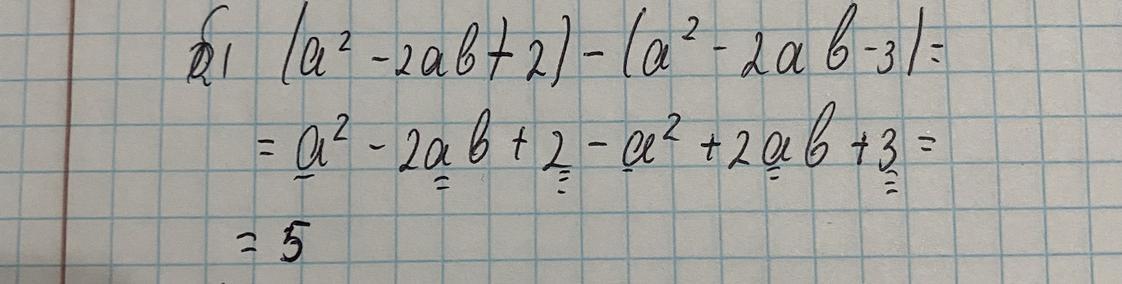 б) (a² - 2ab + 2) - (a² - 2ab - 3) =
= a² - 2ab + 2 - a² + 2ab + 3 =
= 5